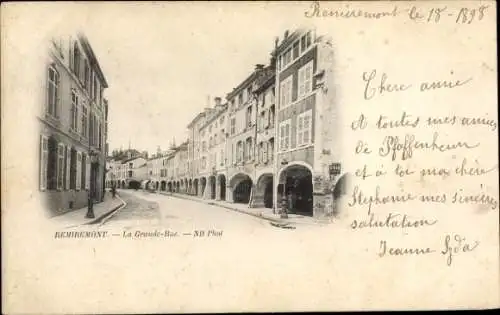 Remiremont le 18 - 1898
Chère amie
A toutes mes amies
de Pfaffenheim
et à toi ma chère
Stéphanie mes sincères
salutation
Jeanne
REMIREMONT. — La Grande-Rue. — ND Phot